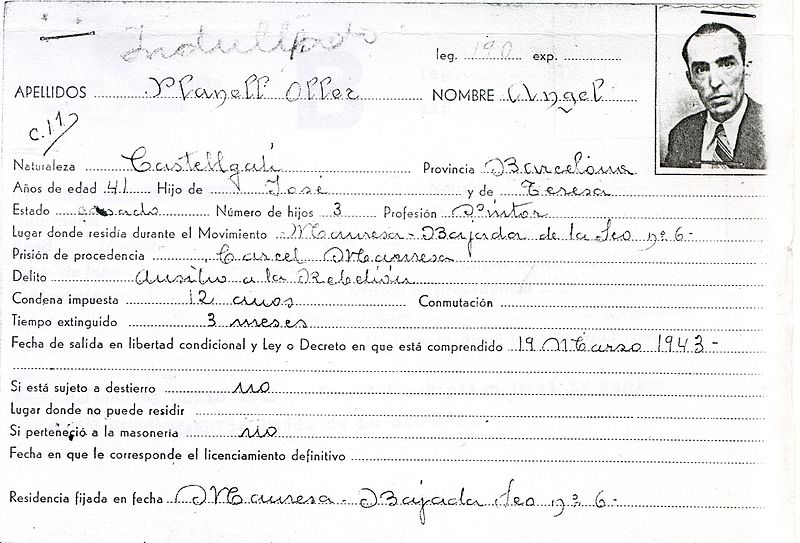 Indultado
leg. 190 exp.
APELLIDOS Planell Oller NOMBRE Angel
Naturaleza Castellgalí Provincia Barcelona
Años de edad 41 Hijo de José y de Teresa
Estado casado Número de hijos 3 Profesión Pintor
Lugar donde residía durante el Movimiento Manresa - Bajada de la Seo nº 6 -
Prisión de procedencia Carcel Manresa
Delito Ausilio a la Rebelión
Condena impuesta 12 anos Conmutación
Tiempo extinguido 3 meses
Fecha de salida en libertad condicional y Ley o Decreto en que está comprendido 19 Marso 1943 -
Si está sujeto a destierro no
Lugar donde no puede residir
Si perteneció a la masonería no
Fecha en que le corresponde el licenciamiento definitivo
Residencia fijada en fecha Manresa - Bajada Seo nº 6 -